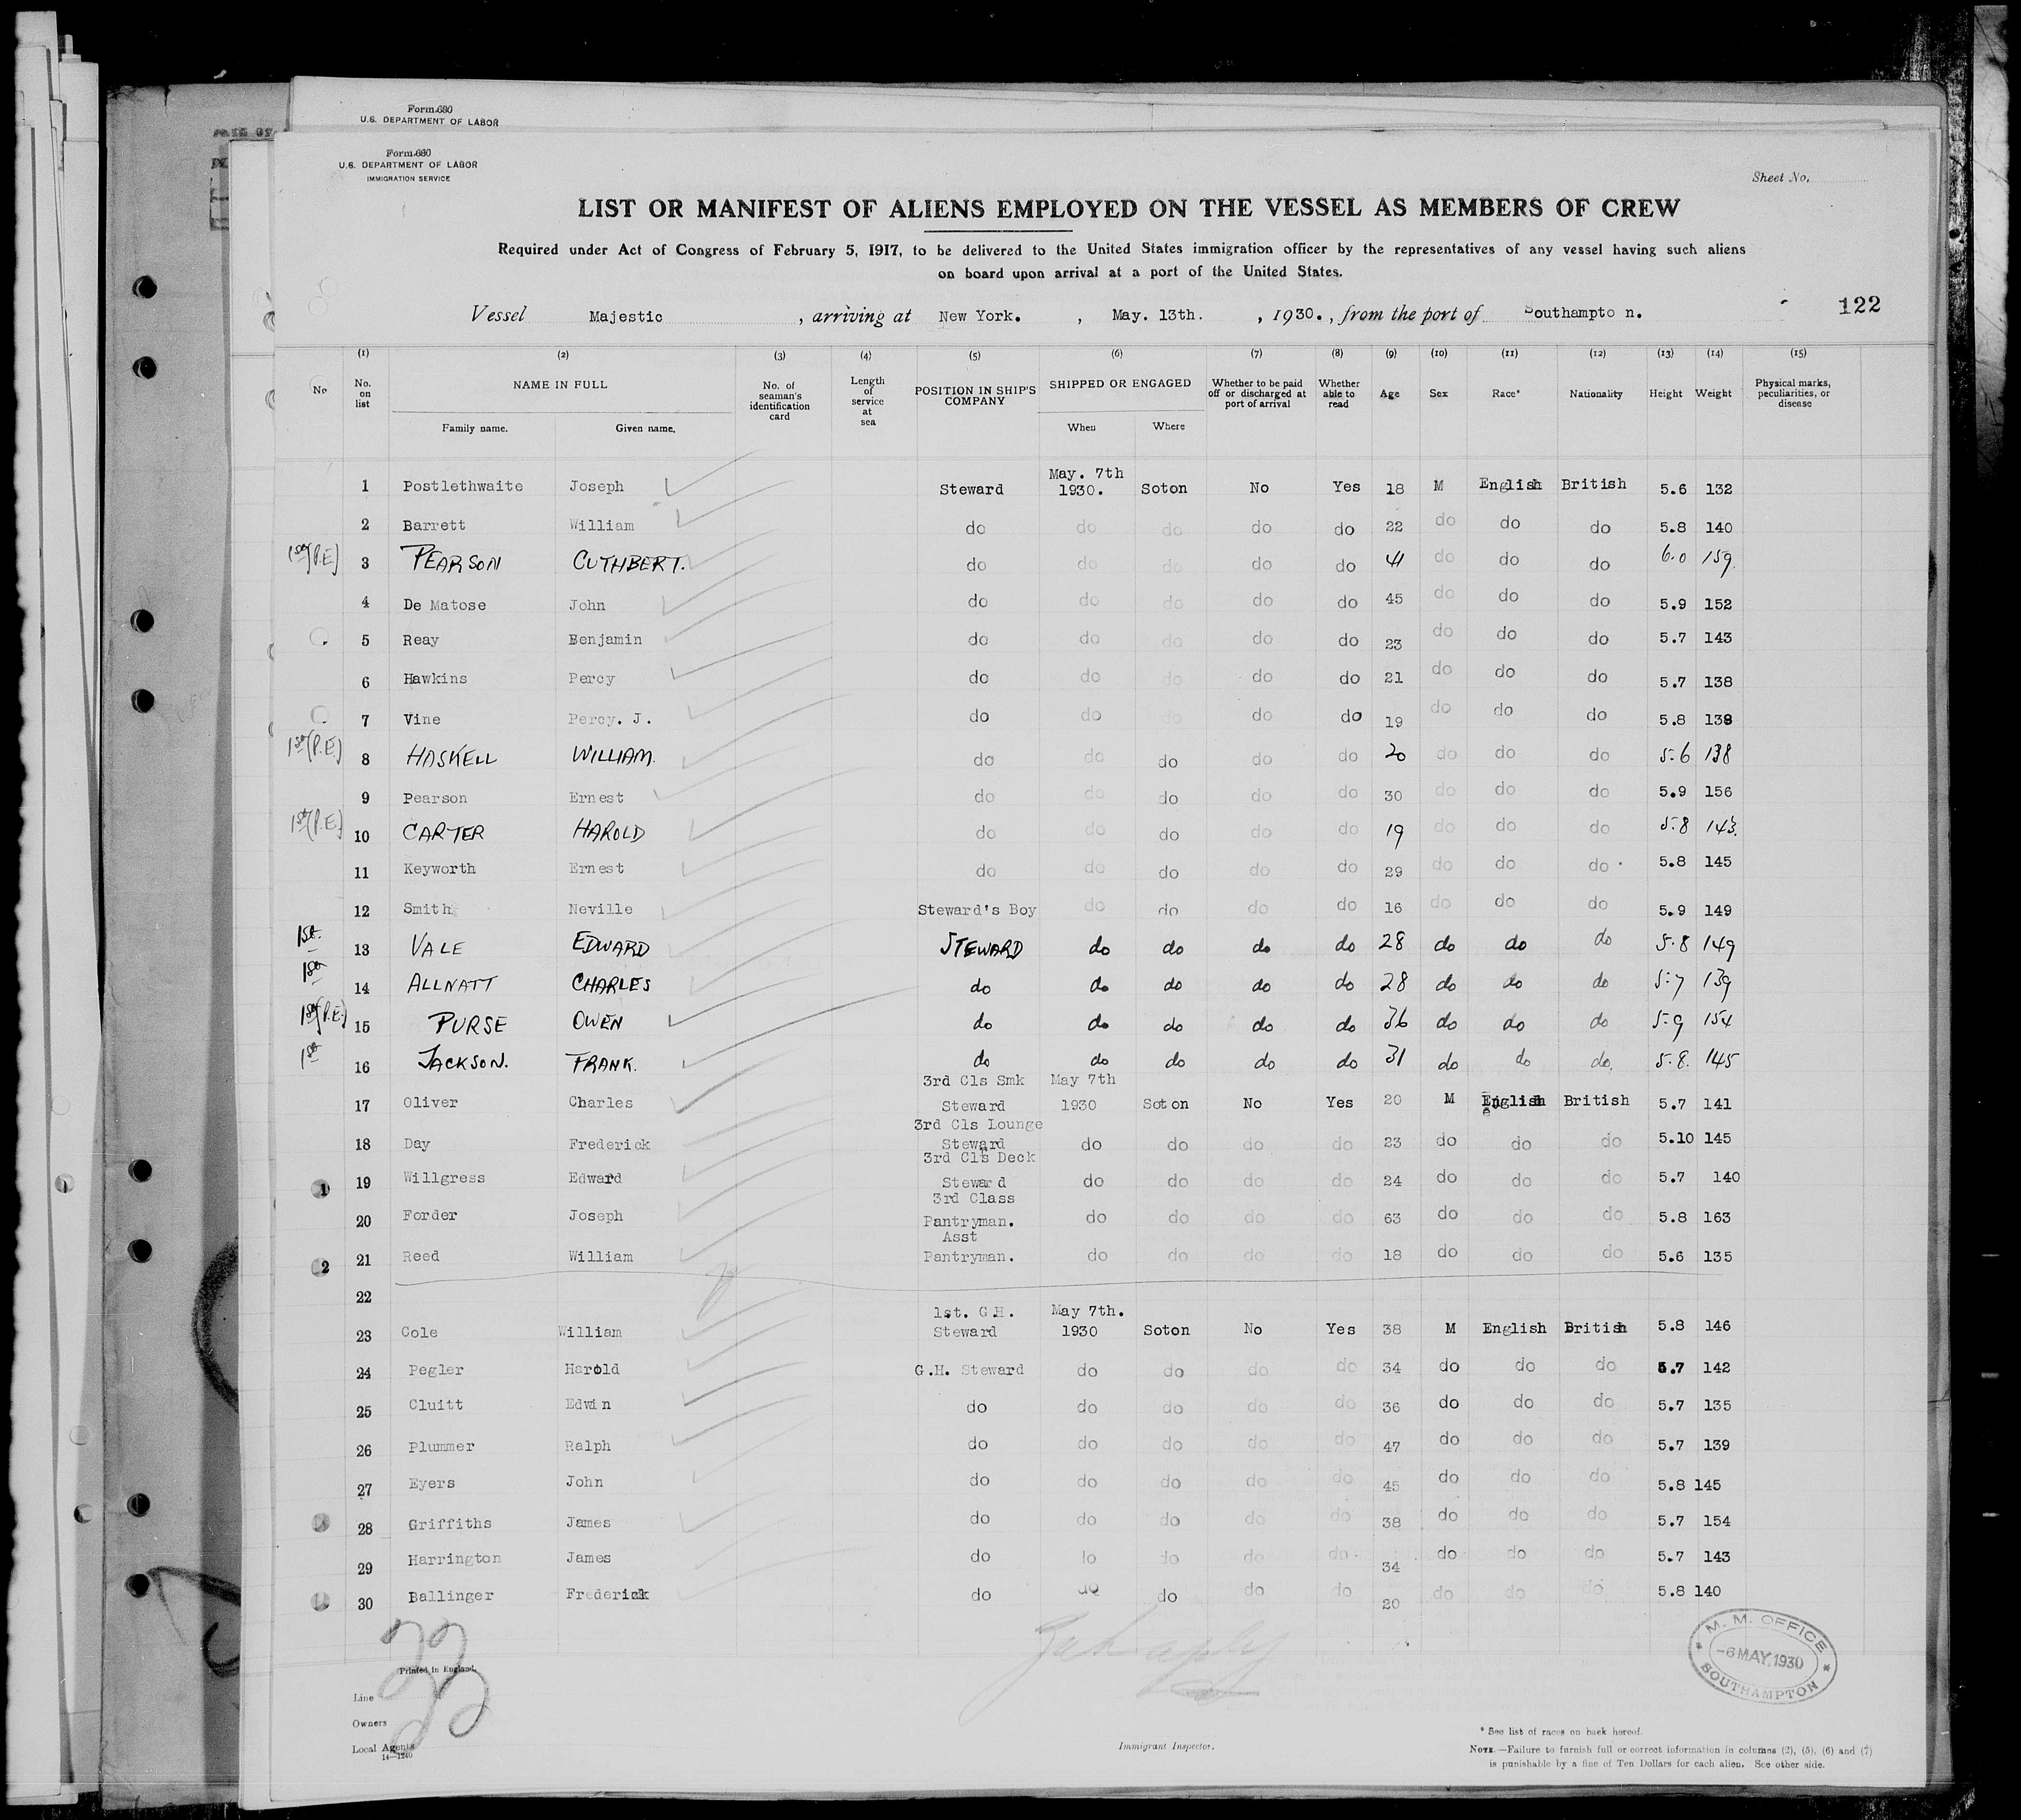 Form 680
U.S. DEPARTMENT OF LABOR
Form 680
U.S. DEPARTMENT OF LABOR
IMMIGRATION SERVICE
Sheet No.
LIST OR MANIFEST OF ALIENS EMPLOYED ON THE VESSEL AS MEMBERS OF CREW
Required under Act of Congress of February 5, 1917, to be delivered to the United States immigration officer by the representatives of any vessel having such aliens
on board upon arrival at a port of the United States.
Vessel Majestic, arriving at New York. , May. 13th. , 1930. , from the port of Southampto n. 122
(1) (2) (3) (4) (5) (6) (7) (8) (9) (10) (11) (12) (13) (14) (15)
No No. on list NAME IN FULL Family name. Given name. No. of seaman's identification card Length of service at sea POSITION IN SHIP'S COMPANY SHIPPED OR ENGAGED When Where Whether to be paid off or discharged at port of arrival Whether able to read Age Sex Race* Nationality Height Weight Physical marks, peculiarities, or disease
1 Postlethwaite Joseph Steward May. 7th 1930. Soton No Yes 18 M English British 5.6 132
2 Barrett William do do do do do 22 do do do 5.8 140
1st (P.E) 3 PEARSON CUTHBERT. do do do do do 41 do do do 6.0 159.
4 De Matose John do do do do do 45 do do do 5.9 152
5 Reay Benjamin do do do do do 23 do do do 5.7 143
6 Hawkins Percy do do do do do 21 do do do 5.7 138
7 Vine Percy. J. do do do do do 19 do do do 5.8 139
1st (P.E) 8 HASKELL WILLIAM. do do do do do 20 do do do 5.6 138
9 Pearson Ernest do do do do do 30 do do do 5.9 156
1st (P.E.) 10 CARTER HAROLD do do do do do 19 do do do 5.8 143.
11 Keyworth Ernest do do do do do 29 do do do 5.8 145
12 Smith Neville Steward's Boy do do do do 16 do do do 5.9 149
1st 13 VALE EDWARD STEWARD do do do do 28 do do do 5.8 149
1st 14 ALLNATT CHARLES do do do do do 28 do do do 5.7 139
1st (P.E.) 15 PURSE OWEN do do do do do 36 do do do 5.9 154
1st 16 JACKSON. FRANK. do do do do do 31 do do do. 5.8. 145
17 Oliver Charles 3rd Cls Smk Steward May 7th 1930 Soton No Yes 20 M English British 5.7 141
18 Day Frederick 3rd Cls Lounge Steward do do do do 23 do do do 5.10 145
1 19 Willgress Edward 3rd Cls Deck Steward do do do do 24 do do do 5.7 140
20 Forder Joseph 3rd Class Pantryman. do do do do 63 do do do 5.8 163
2 21 Reed William Asst Pantryman. do do do do 18 do do do 5.6 135
22
23 Cole William 1st. G.H. Steward May 7th. 1930 Soton No Yes 38 M English British 5.8 146
24 Pegler Harold G.H. Steward do do do do 34 do do do 5.7 142
25 Cluitt Edwin do do do do do 36 do do do 5.7 135
26 Plummer Ralph do do do do do 47 do do do 5.7 139
27 Eyers John do do do do do 45 do do do 5.8 145
28 Griffiths James do do do do do 38 do do do 5.7 154
29 Harrington James do do do do do 34 do do do 5.7 143
30 Ballinger Frederick do do do do do 20 do do do 5.8 140
M. M. OFFICE
-6 MAY. 1930
SOUTHAMPTON
Printed in England.
Line
Owners
Local Agents
14—1240
Immigrant Inspector.
* See list of races on back hereof.
NOTE.—Failure to furnish full or correct information in columns (2), (5), (6) and (7)
is punishable by a fine of Ten Dollars for each alien. See other side.